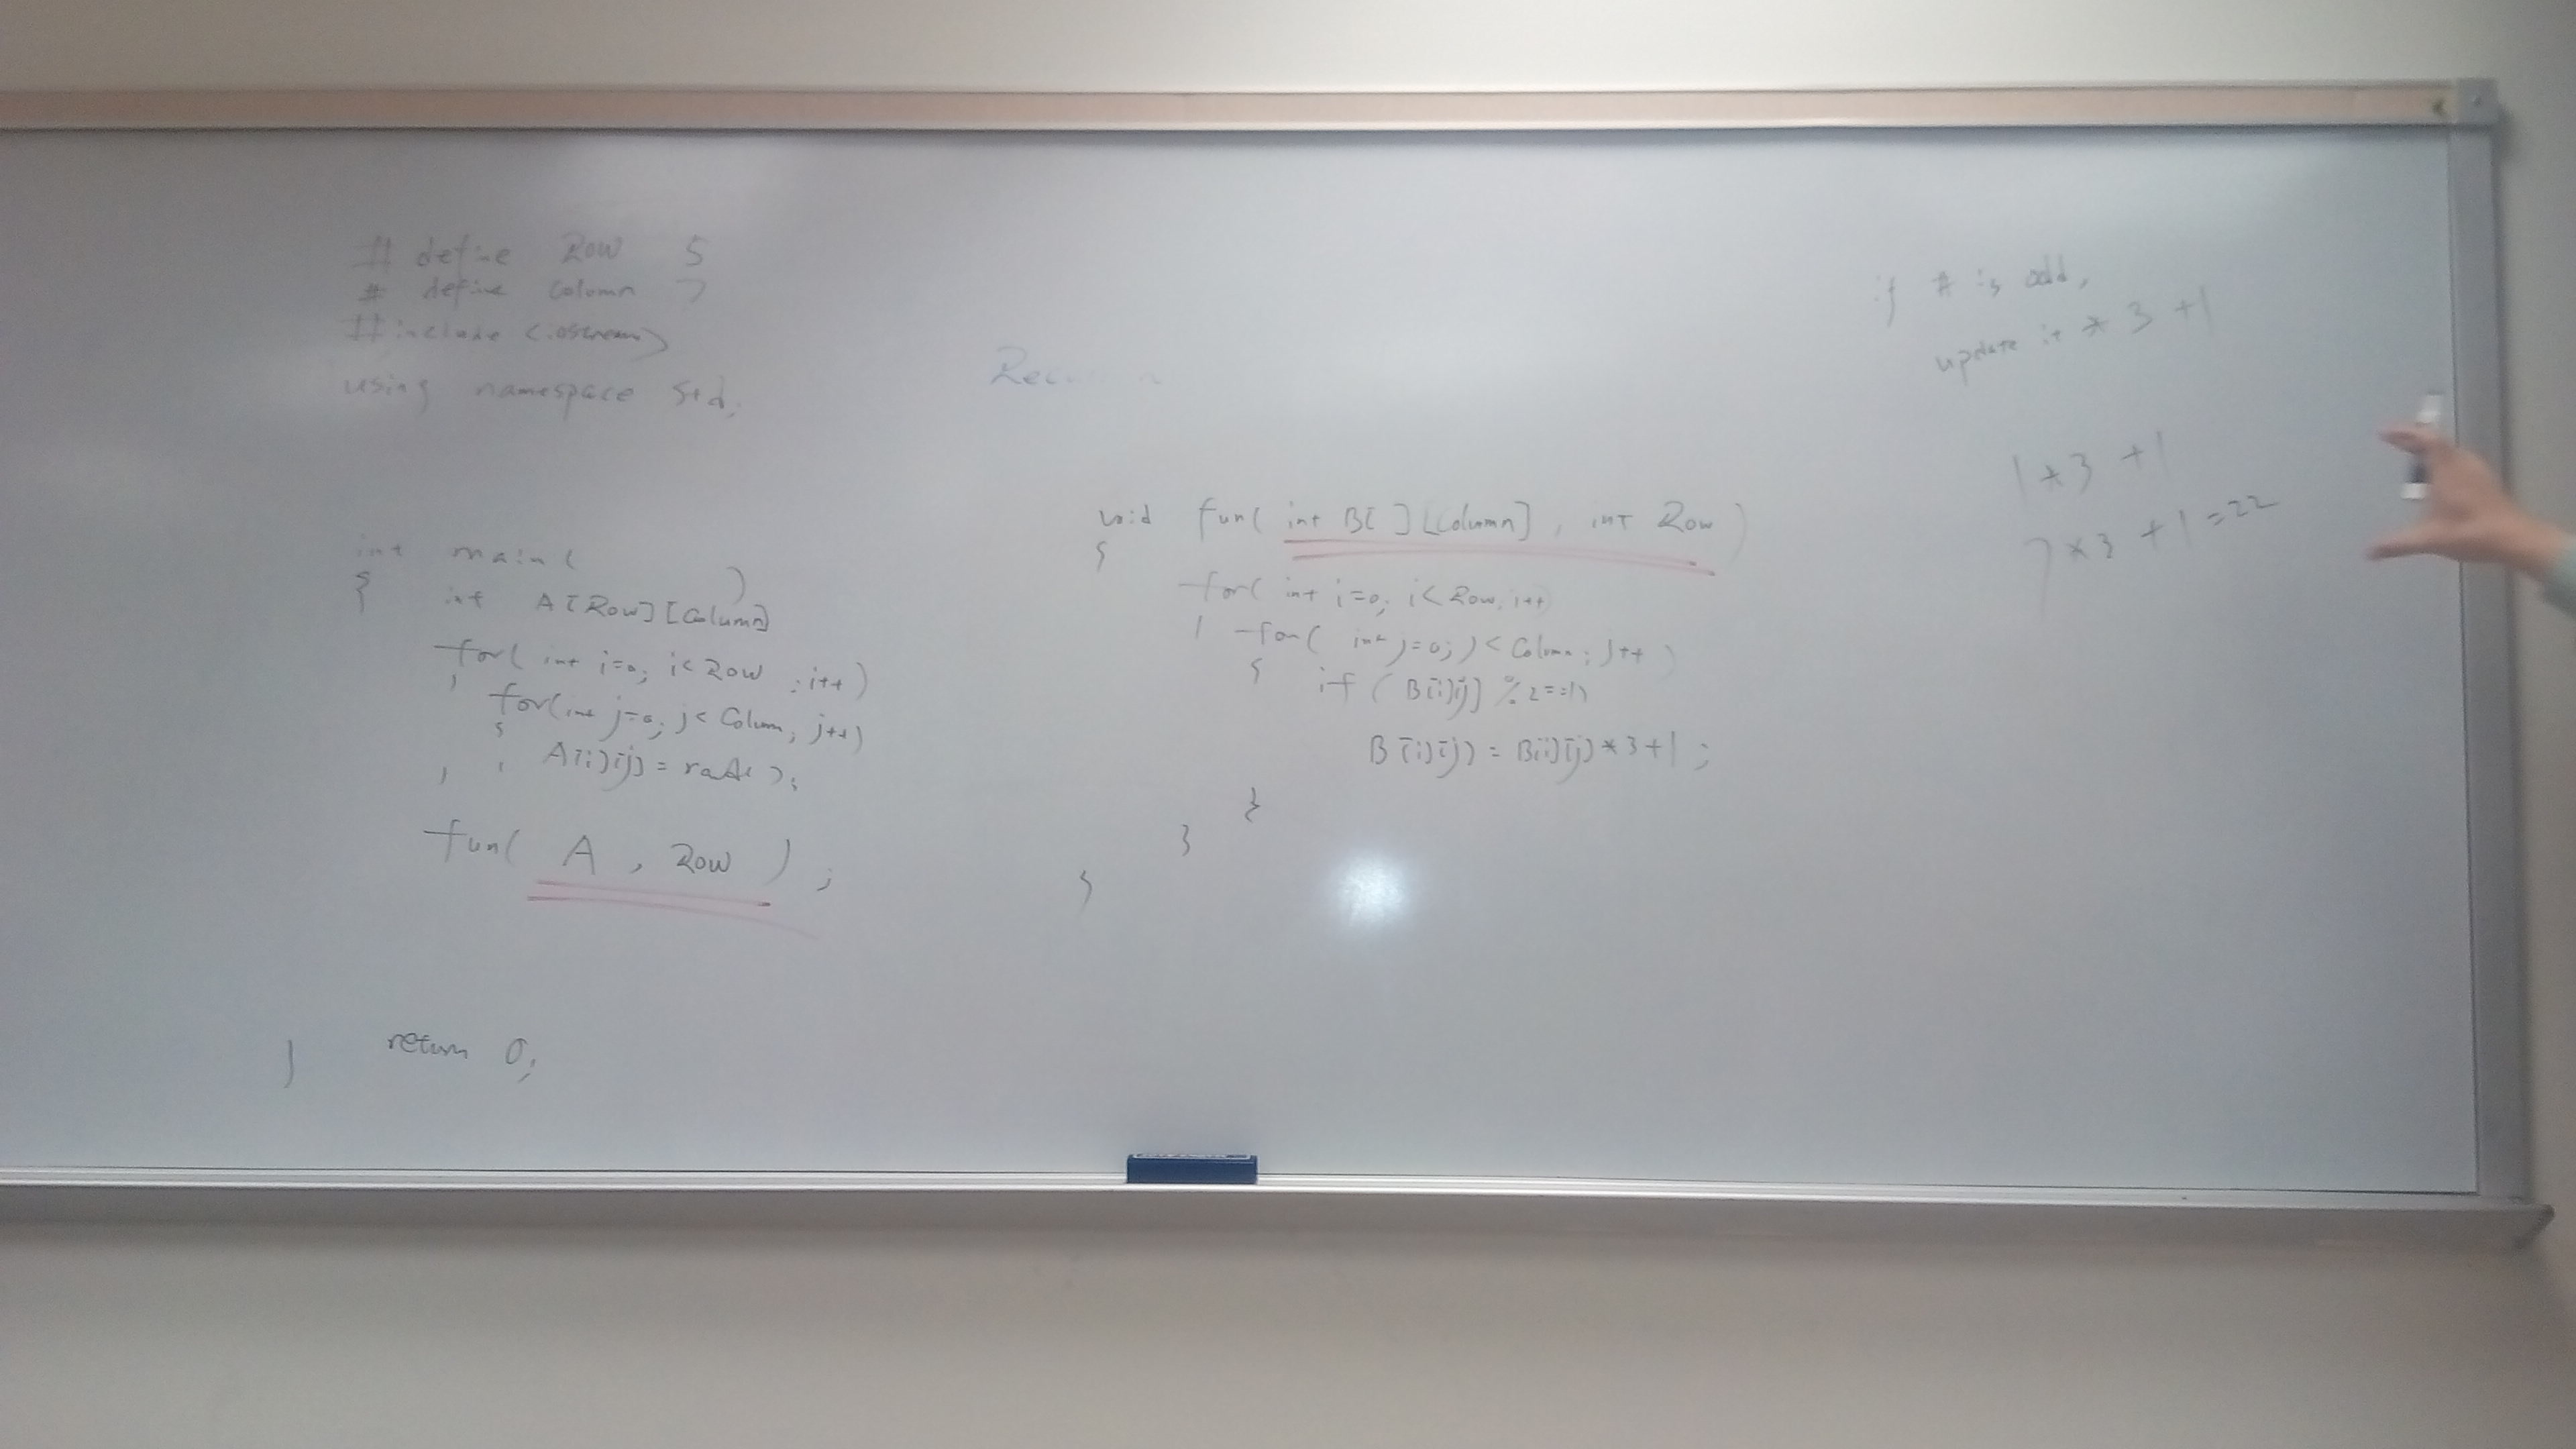 # define Row 5
# define Column 7
#include <iostream>
using namespace std;
int main( )
{
int A[Row][Column]
for( int i=0; i<Row ; i++)
{
for(int j=0; j< Column; j++)
{
A[i][j] = rand( );
} }
fun( A , Row ) ;
return 0;
}
Rec
void fun( int B[ ][Column] , int Row )
{
for( int i=0; i< Row; i++)
{ for( int j=0; j< Column; j++ )
{
if ( B[i][j] % 2==1)
B[i][j] = B[i][j]*3+1 ;
}
}
}
if # is odd,
update it * 3 +1
1*3 +1
7*3 +1 =22